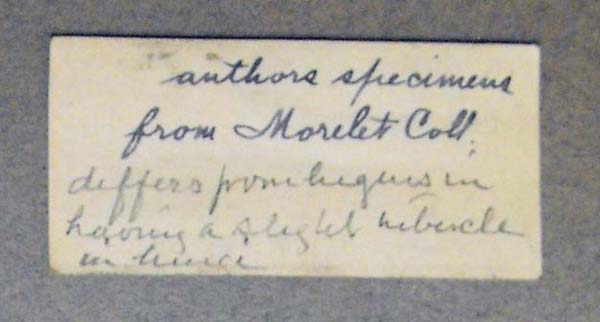 authors specimens
from Morelet Coll.
differs from in
having a slight tubercle
in hinge